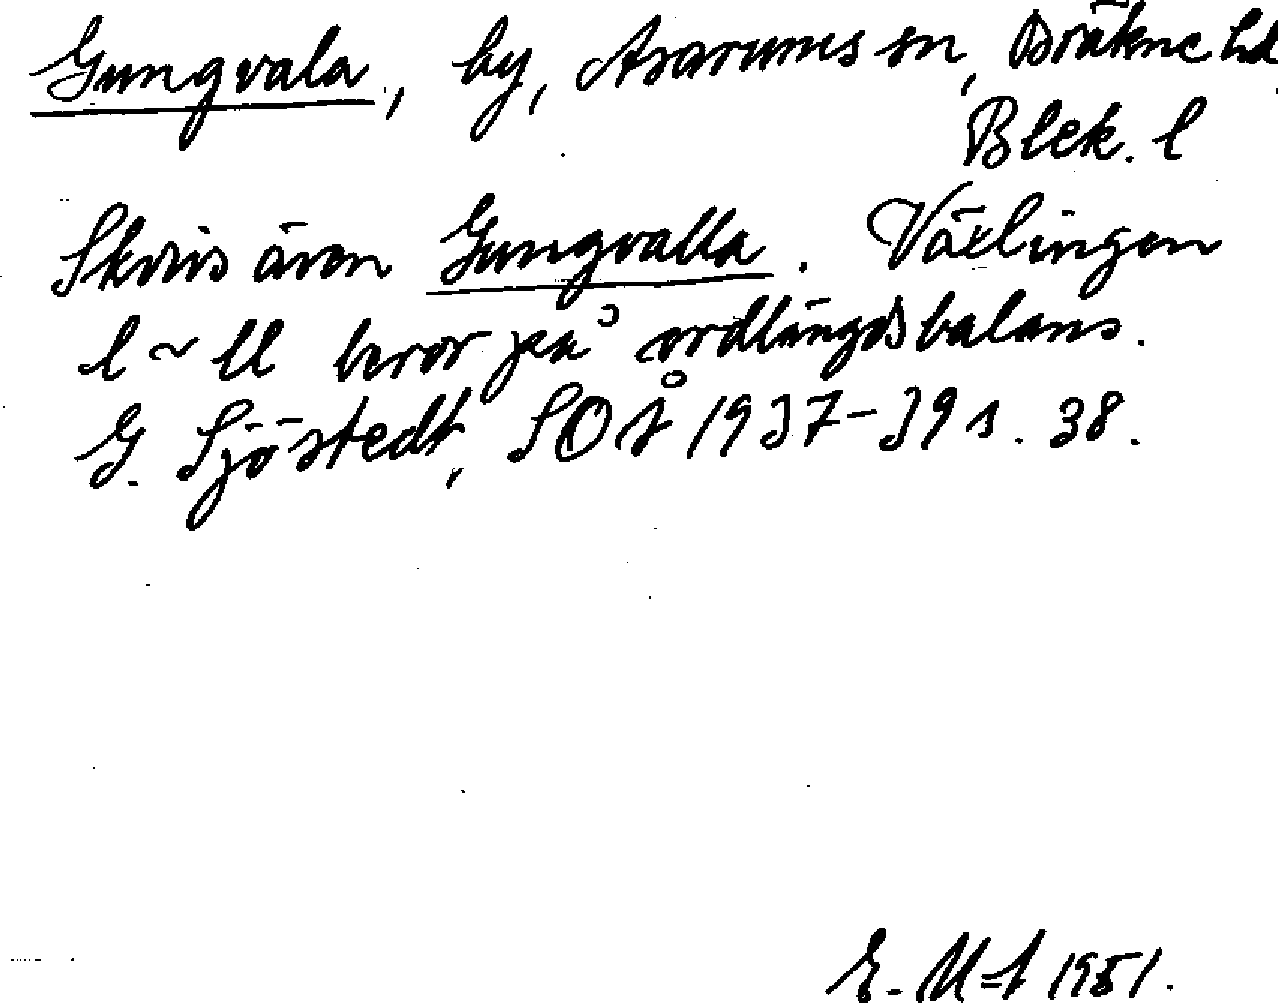 Gungvala, by, Asarums sn, Bräkne hd
Blek. l
Skrivs även Gungvalla. Växlingen
l ~ ll beror på ordlängdsbalans.
G. Sjöstedt, SOÅ 1937-39 s. 38.
E. M-t 1951.